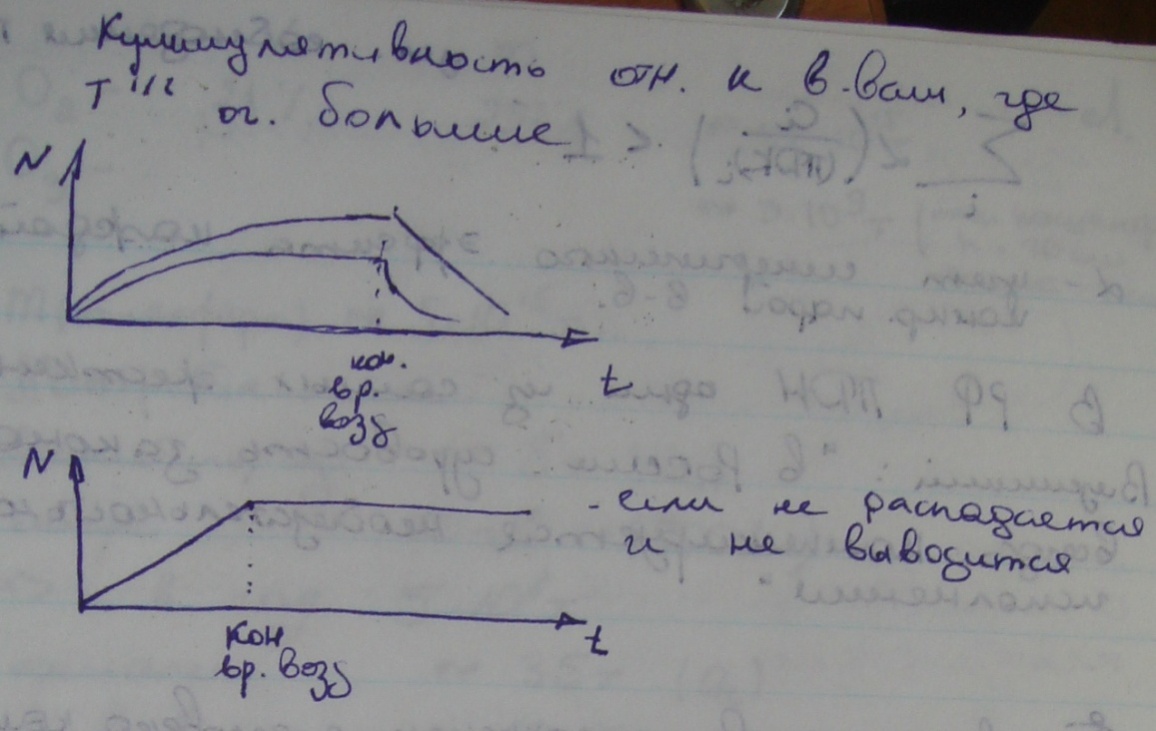 Куммулятивность отн. к в-вам, где
T 1/2 оч. большие
N
кон.
вр.
возд
t
N
- если не распадается
и не выводится
кон
вр. возд
t